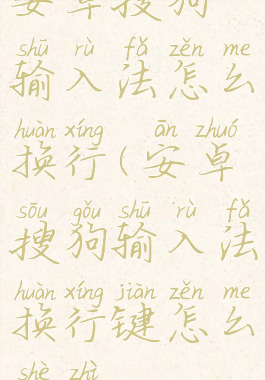 安卓搜狗
shū rù fǎ zěn me
输入法怎么
huàn xíng ān zhuó
换行(安卓
sōu gǒu shū rù fǎ
搜狗输入法
huàn xíng jiàn zěn me
换行键怎么
shè zhì